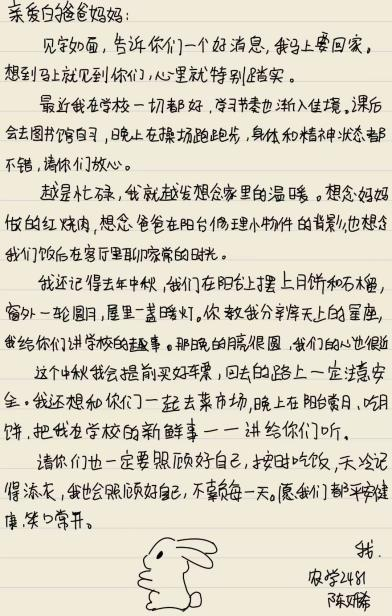 亲爱的爸爸妈妈:
见字如面,告诉你们一个好消息,我马上要回家。
想到马上就见到你们,心里就特别踏实。
最近我在学校一切都好,学习节奏也渐入佳境。课后
会去图书馆自习,晚上在操场跑跑步,身体和精神状态都
不错,请你们放心。
越是忙碌,我就越发想念家里的温暖。想念妈妈
做的红烧肉,想念爸爸在阳台修理小物件的背影,也想念
我们饭后在客厅里聊家常的时光。
我还记得去年中秋,我们在阳台上摆上月饼和石榴,
窗外一轮圆月,屋里一盏暖灯。你教我分辨天上的星座,
我给你们讲学校的趣事。那晚的月亮很圆,我们的心也很近
这个中秋我会提前买好车票,回去的路上一定注意安
全。我还想和你们一起去菜市场,晚上在阳台赏月、吃月
饼,把我在学校的新鲜事一一讲给你们听。
请你们也一定要照顾好自己,按时吃饭,天冷记
得添衣,我也会照顾好自己,不辜负每一天。愿我们都平安健
康,笑口常开。
我.
农学2481
陈妍希